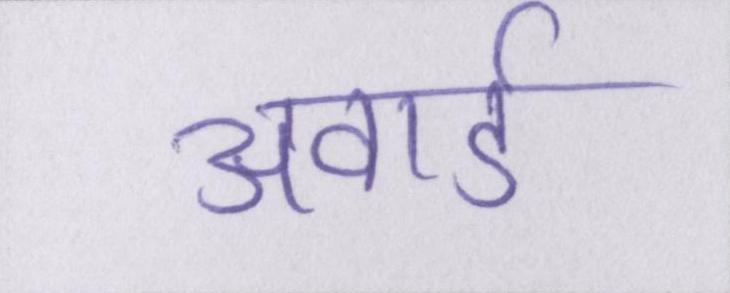 अवार्ड